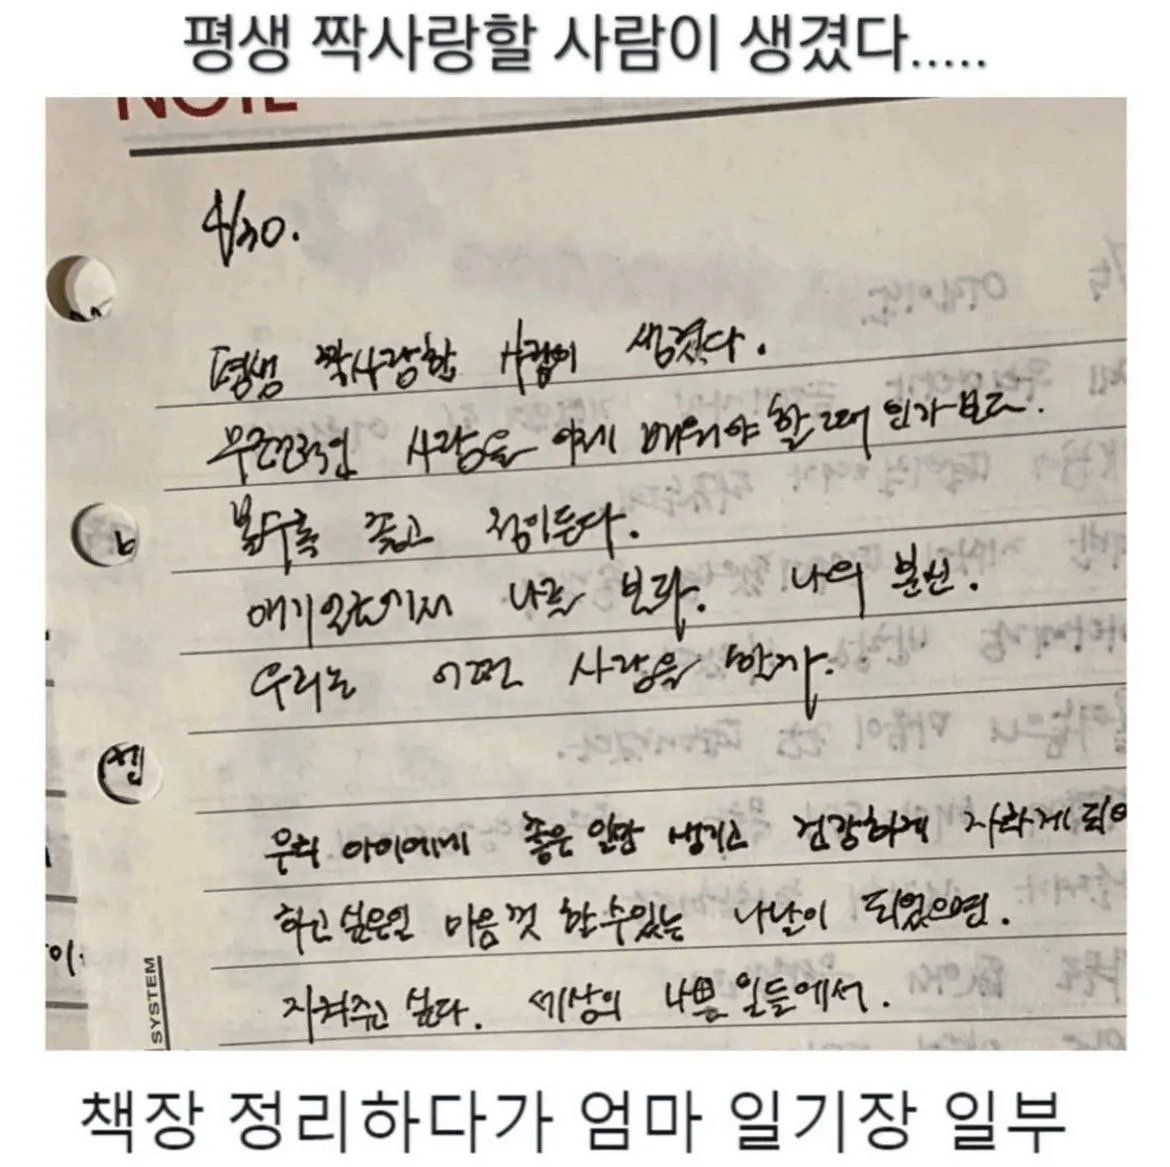 평생 짝사랑할 사람이 생겼다.....
NOTE
4/30.
평생 짝사랑할 사람이 생겼다.
무조건적인 사랑을 이제 배워야 할 때 인가보다.
볼수록 좋고 정이든다.
애기 있는기서 나를 보라. 나의 분신.
우리는 어떤 사랑을 할까.
우리 아이에게 좋은 일만 생기고 건강하게 자라게 되어
하고 싶은일 마음껏 할 수 있는 나날이 되었으면.
지켜주고 싶다. 세상의 나쁜 일들에서.
SYSTEM
책장 정리하다가 엄마 일기장 일부